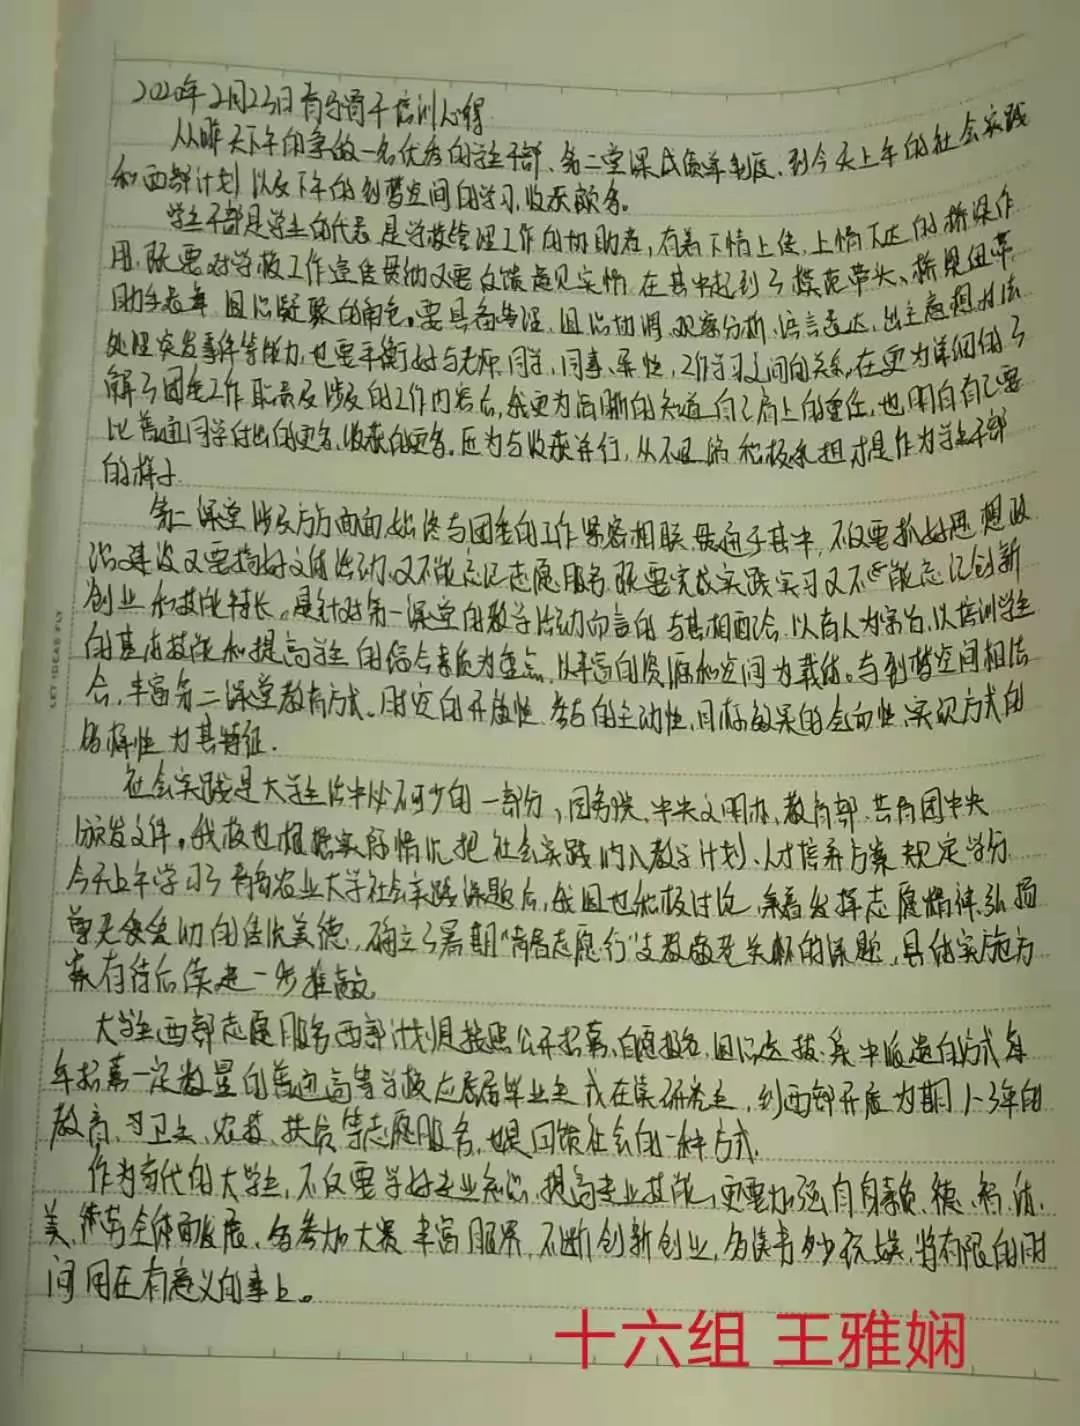 2020年2月23日青马骨干培训心得
从昨天下午的争做一名优秀的学生干部、第二堂课成绩单制度,到今天上午的社会实践
和西部计划以及下午的创梦空间的学习,收获颇多。
学生干部是学生的代表,是学校管理工作的协助者,有着下情上传、上情下达的桥梁作
用,既要对学校工作宣传贯彻又要反馈意见实情,在其中起到了模范带头、桥梁纽带、
助手参谋、团心凝聚的角色。要具备管理、团心协调、观察分析、语言表达、出主意想办法
处理突发事件等能力,也要平衡好与老师、同学、同事、异性,工作学习之间的关系,在更为详细的了
解了团委工作职责及涉及的工作内容后,我更为清晰的知道自己肩上的重任,也明白自己要
比普通同学付出的更多,收获的更多。压力与收获并行,从不退缩积极承担才是作为学生干部
的样子
第二课堂涉及方方面面,始终与团委的工作紧密相联,贯通于其中,不仅要抓好思想政
治建设又要搞好文体活动,又不能忘记志愿服务,既要完成实践实习又不能忘记创新
创业和技能特长。是针对第一课堂的教学活动而言的,与其相配合,以育人为宗旨,以培训学生
的基本技能和提高学生的综合素质为重点,以丰富的资源和空间为载体。与创梦空间相结
合,丰富第二课堂教育方式。时空的开放性、参与的主动性、目标效果的全面性、实现方式的
多样性为其特征.
社会实践是大学生活中必不可少的一部分,国务院、中央文明办、教育部、共青团中央
颁发文件。我校也根据实际情况把社会实践纳入教学计划、人才培养方案规定学分
今天上午学习了青岛农业大学社会实践课题后,我团也积极讨论,秉着发挥志愿精神,弘扬
尊老爱幼的传统美德,确立了暑期"青岛志愿行"支教敬老关怀的课题,具体实施方
案有待后续进一步推敲
大学生西部志愿服务西部计划是按照公开招募、自愿报名、团心选拔、集中派遣的方式每
年招募一定数量的普通高等学校应届毕业生或在读研究生,到西部开展为期1-3年的
教育、卫生、农技、扶贫等志愿服务,也是回馈社会的一种方式.
作为当代的大学生,不仅要学好专业知识,提高专业技能,更要加强自身素质,德、智、体、
美、劳全面发展,多参加大赛丰富眼界,不断创新创业,多读书少玩娱,将有限的时
间用在有意义的事上。
十六组 王雅娴